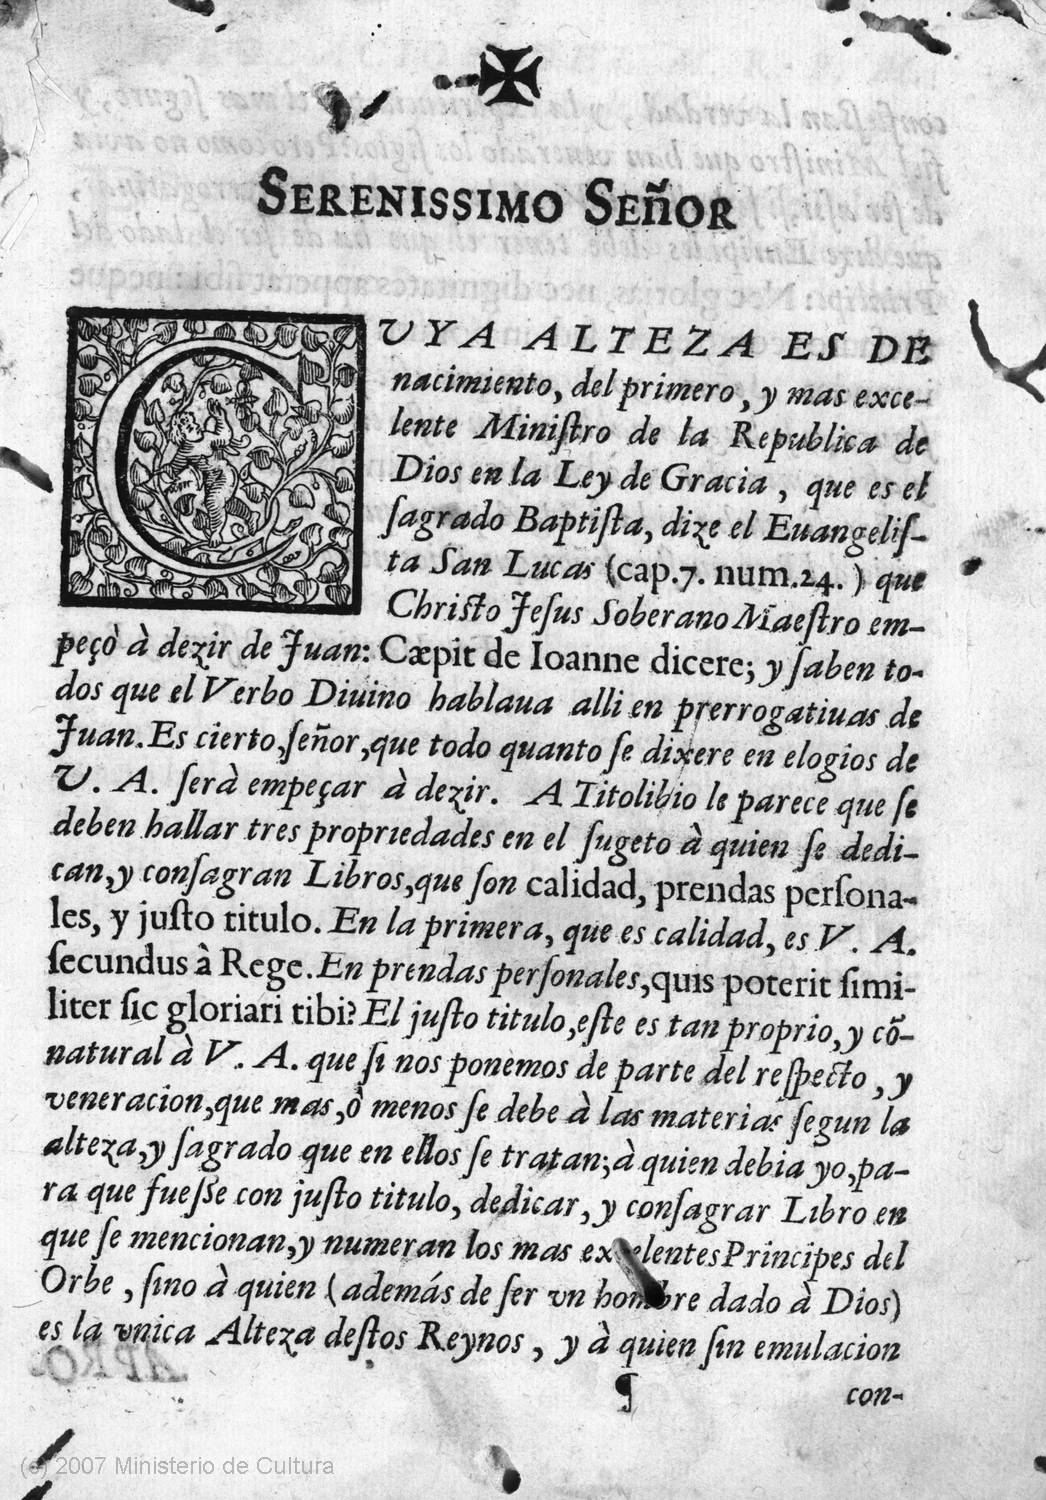 SERENISSIMO SEñOR
CUYA ALTEZA ES DE
nacimiento, del primero, y mas exce-
lente Miniſtro de la Republica de
Dios en la Ley de Gracia, que es el
ſagrado Baptiſta, dize el Euangeliſ-
ta San Lucas (cap.7. num.24.) que
Chriſto Jeſus Soberano Maeſtro em-
peçò à dezir de Juan: Cæpit de Ioanne dicere; y ſaben to-
dos que el Verbo Diuino hablaua alli en prerrogatiuas de
Juan. Es cierto, ſeñor, que todo quanto ſe dixere en elogios de
V. A. ſerà empeçar à dezir. A Titolibio le parece que ſe
deben hallar tres propriedades en el ſugeto à quien ſe dedi-
can, y conſagran Libros, que ſon calidad, prendas perſona-
les, y juſto titulo. En la primera, que es calidad, es V. A.
ſecundus à Rege. En prendas perſonales, quis poterit ſimi-
liter ſic gloriari tibi? El juſto titulo, eſte es tan proprio, y cõ-
natural à V. A. que ſi nos ponemos de parte del reſpecto, y
veneracion, que mas, ò menos ſe debe à las materias ſegun la
alteza, y ſagrado que en ellos ſe tratan; à quien debia yo, pa-
ra que fueſſe con juſto titulo, dedicar, y conſagrar Libro en
que ſe mencionan, y numeran los mas excelentes Principes del
Orbe, ſino à quien (además de ſer vn hombre dado à Dios)
es la vnica Alteza deſtos Reynos, y à quien ſin emulacion
¶ con-
(c) 2007 Ministerio de Cultura